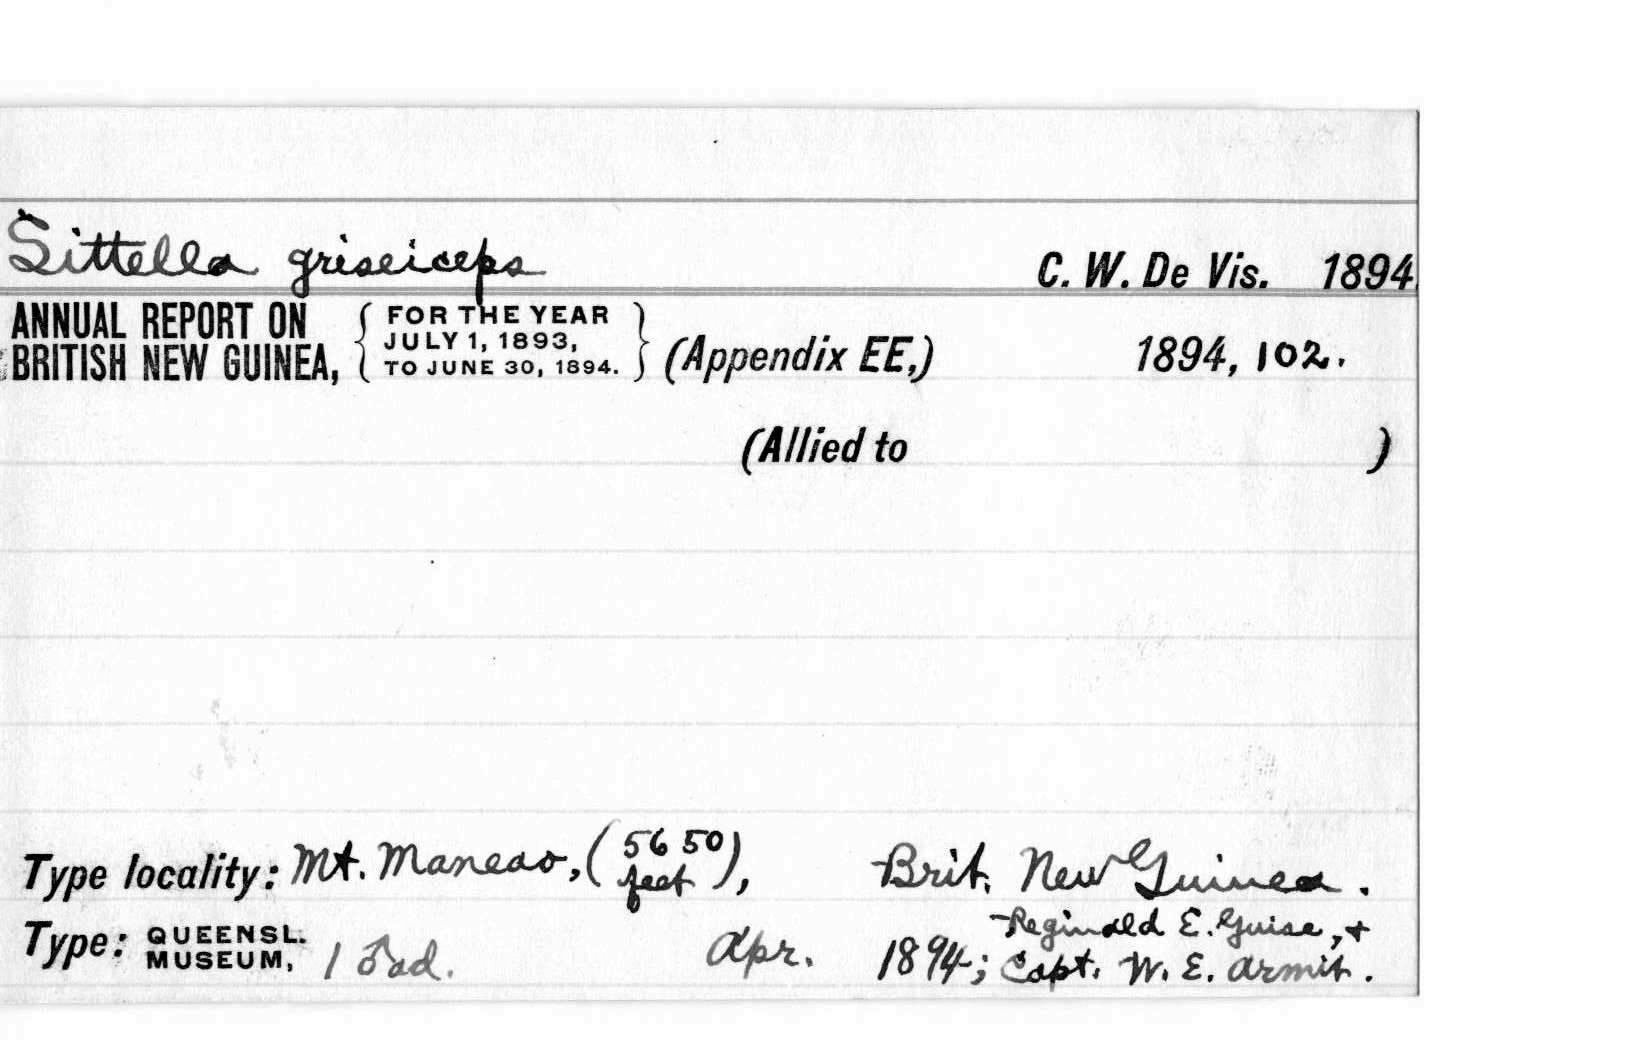 Sittella griseiceps C. W. De Vis. 1894.
ANNUAL REPORT ON { FOR THE YEAR }
BRITISH NEW GUINEA, JULY 1, 1893, (Appendix EE,) 1894, 102.
TO JUNE 30, 1894.
(Allied to )
Type locality: Mt. Maneao, (5650 feet), Brit. New Guinea.
Type: QUEENSL. MUSEUM, 1 ♂ ad. Apr. 1894; Reginald E. Guise, +
Capt. W. E. Armit.